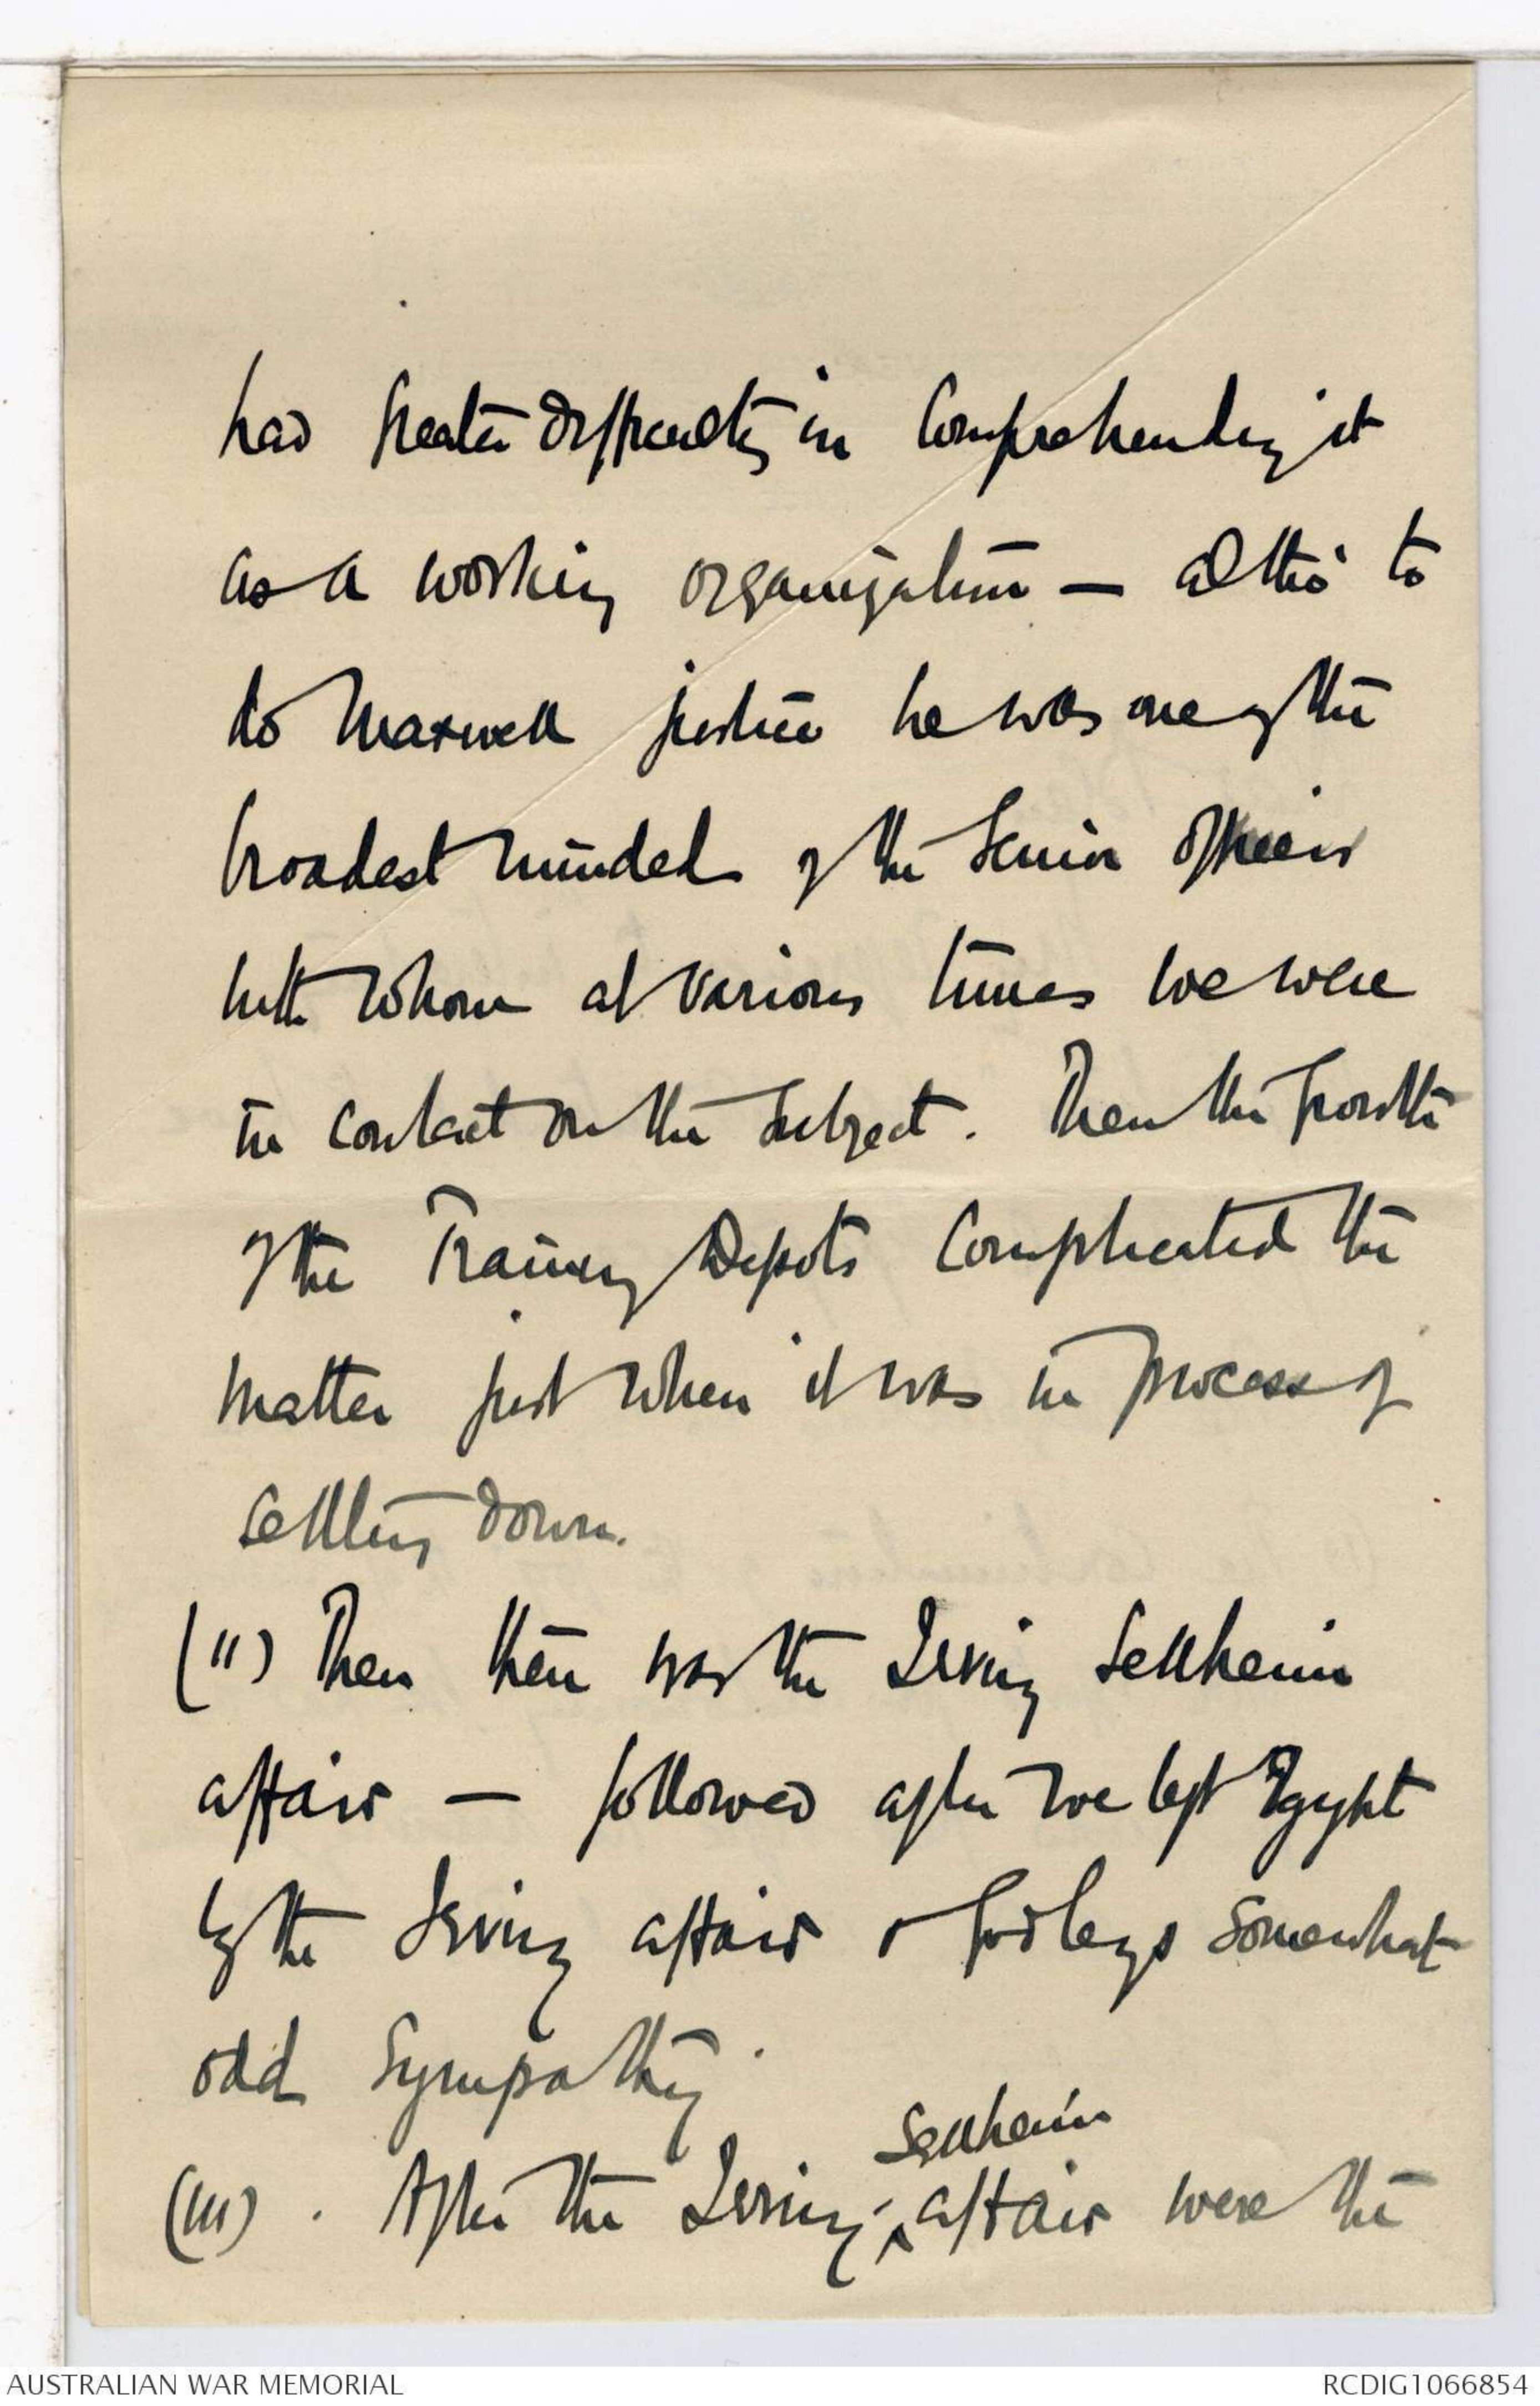 had greater difficulty in comprehending it
as a working organization — altho' to
do Maxwell justice he was one of the
broadest minded of the senior officers
with whom at various times we were
in contact on the subject. Then the growth
of the Training Depots complicated the
matter just when it was in process of
settling down.
(II) Then there was the Irving Sellheim
affair — followed after we left Egypt
by the Irving affair & Godleys somewhat
odd sympathy.
Sellheim
(III). After the Irving-^affair were the
AUSTRALIAN WAR MEMORIAL
RCDIG1066854